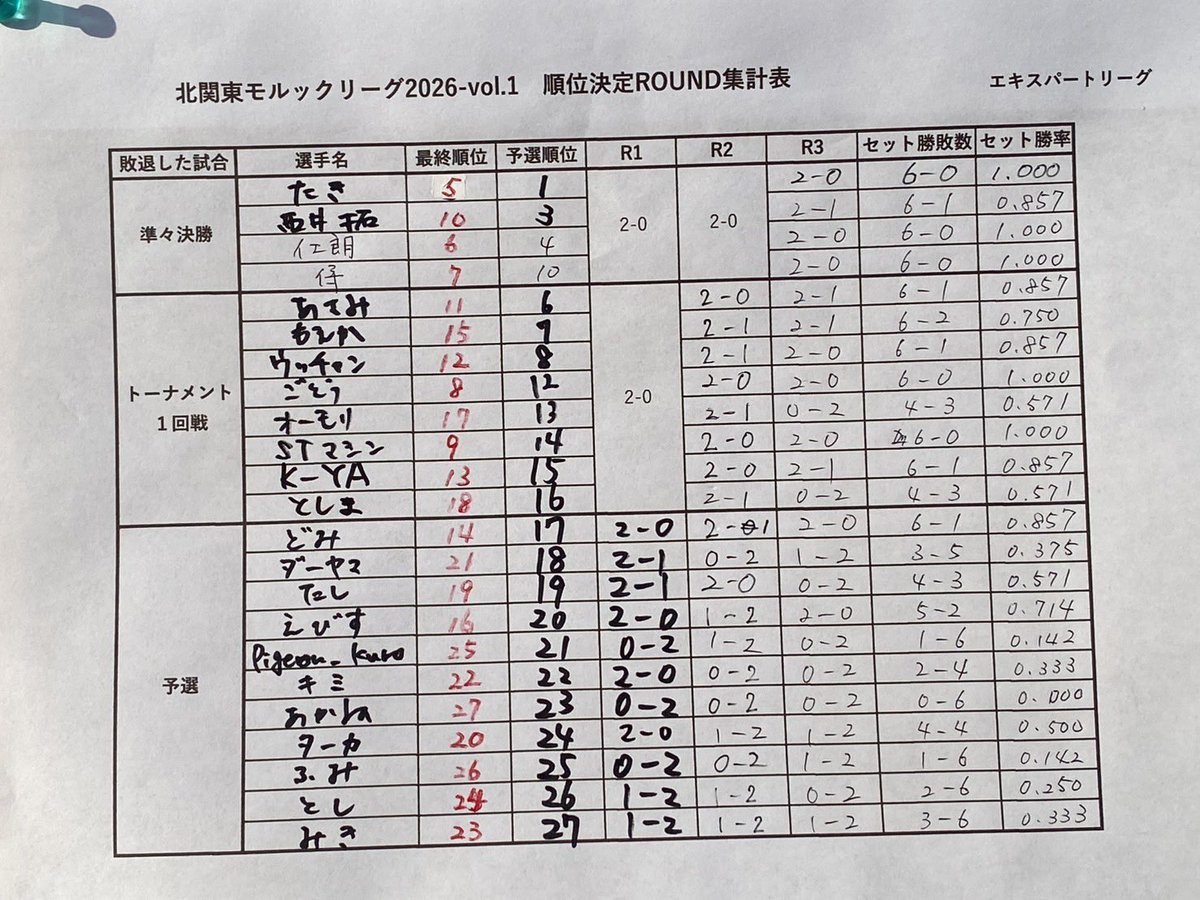 北関東モルックリーグ2026-vol.1 順位決定ROUND集計表 エキスパートリーグ
敗退した試合 選手名 最終順位 予選順位 R1 R2 R3 セット勝敗数 セット勝率
準々決勝 2-0 2-0
たき 5 1 2-0 6-0 1.000
西井 拓 10 3 2-1 6-1 0.857
仁朗 6 4 2-0 6-0 1.000
7 10 2-0 6-0 1.000
トーナメント
1回戦 2-0
あてみ 11 6 2-0 2-1 6-1 0.857
15 7 2-1 2-1 6-2 0.750
ウッチャン 12 8 2-1 2-0 6-1 0.857
ごどう 8 12 2-0 2-0 6-0 1.000
オーモリ 17 13 2-1 0-2 4-3 0.571
STマシン 9 14 2-0 2-0 6-0 1.000
K-YA 13 15 2-0 2-1 6-1 0.857
としま 18 16 2-1 0-2 4-3 0.571
予選
どみ 14 17 2-0 2-1 2-0 6-1 0.857
ダーヤマ 21 18 2-1 0-2 1-2 3-5 0.375
たし 19 19 2-1 2-0 0-2 4-3 0.571
えびす 16 20 2-0 1-2 2-0 5-2 0.714
Pigeon_kuro 25 21 0-2 1-2 0-2 1-6 0.142
キミ 22 22 2-0 0-2 0-2 2-4 0.333
あかね 27 23 0-2 0-2 0-2 0-6 0.000
ターカ 20 24 2-0 1-2 1-2 4-4 0.500
ふみ 26 25 0-2 0-2 1-2 1-6 0.142
とし 24 26 1-2 1-2 0-2 2-6 0.250
みき 23 27 1-2 1-2 1-2 3-6 0.333